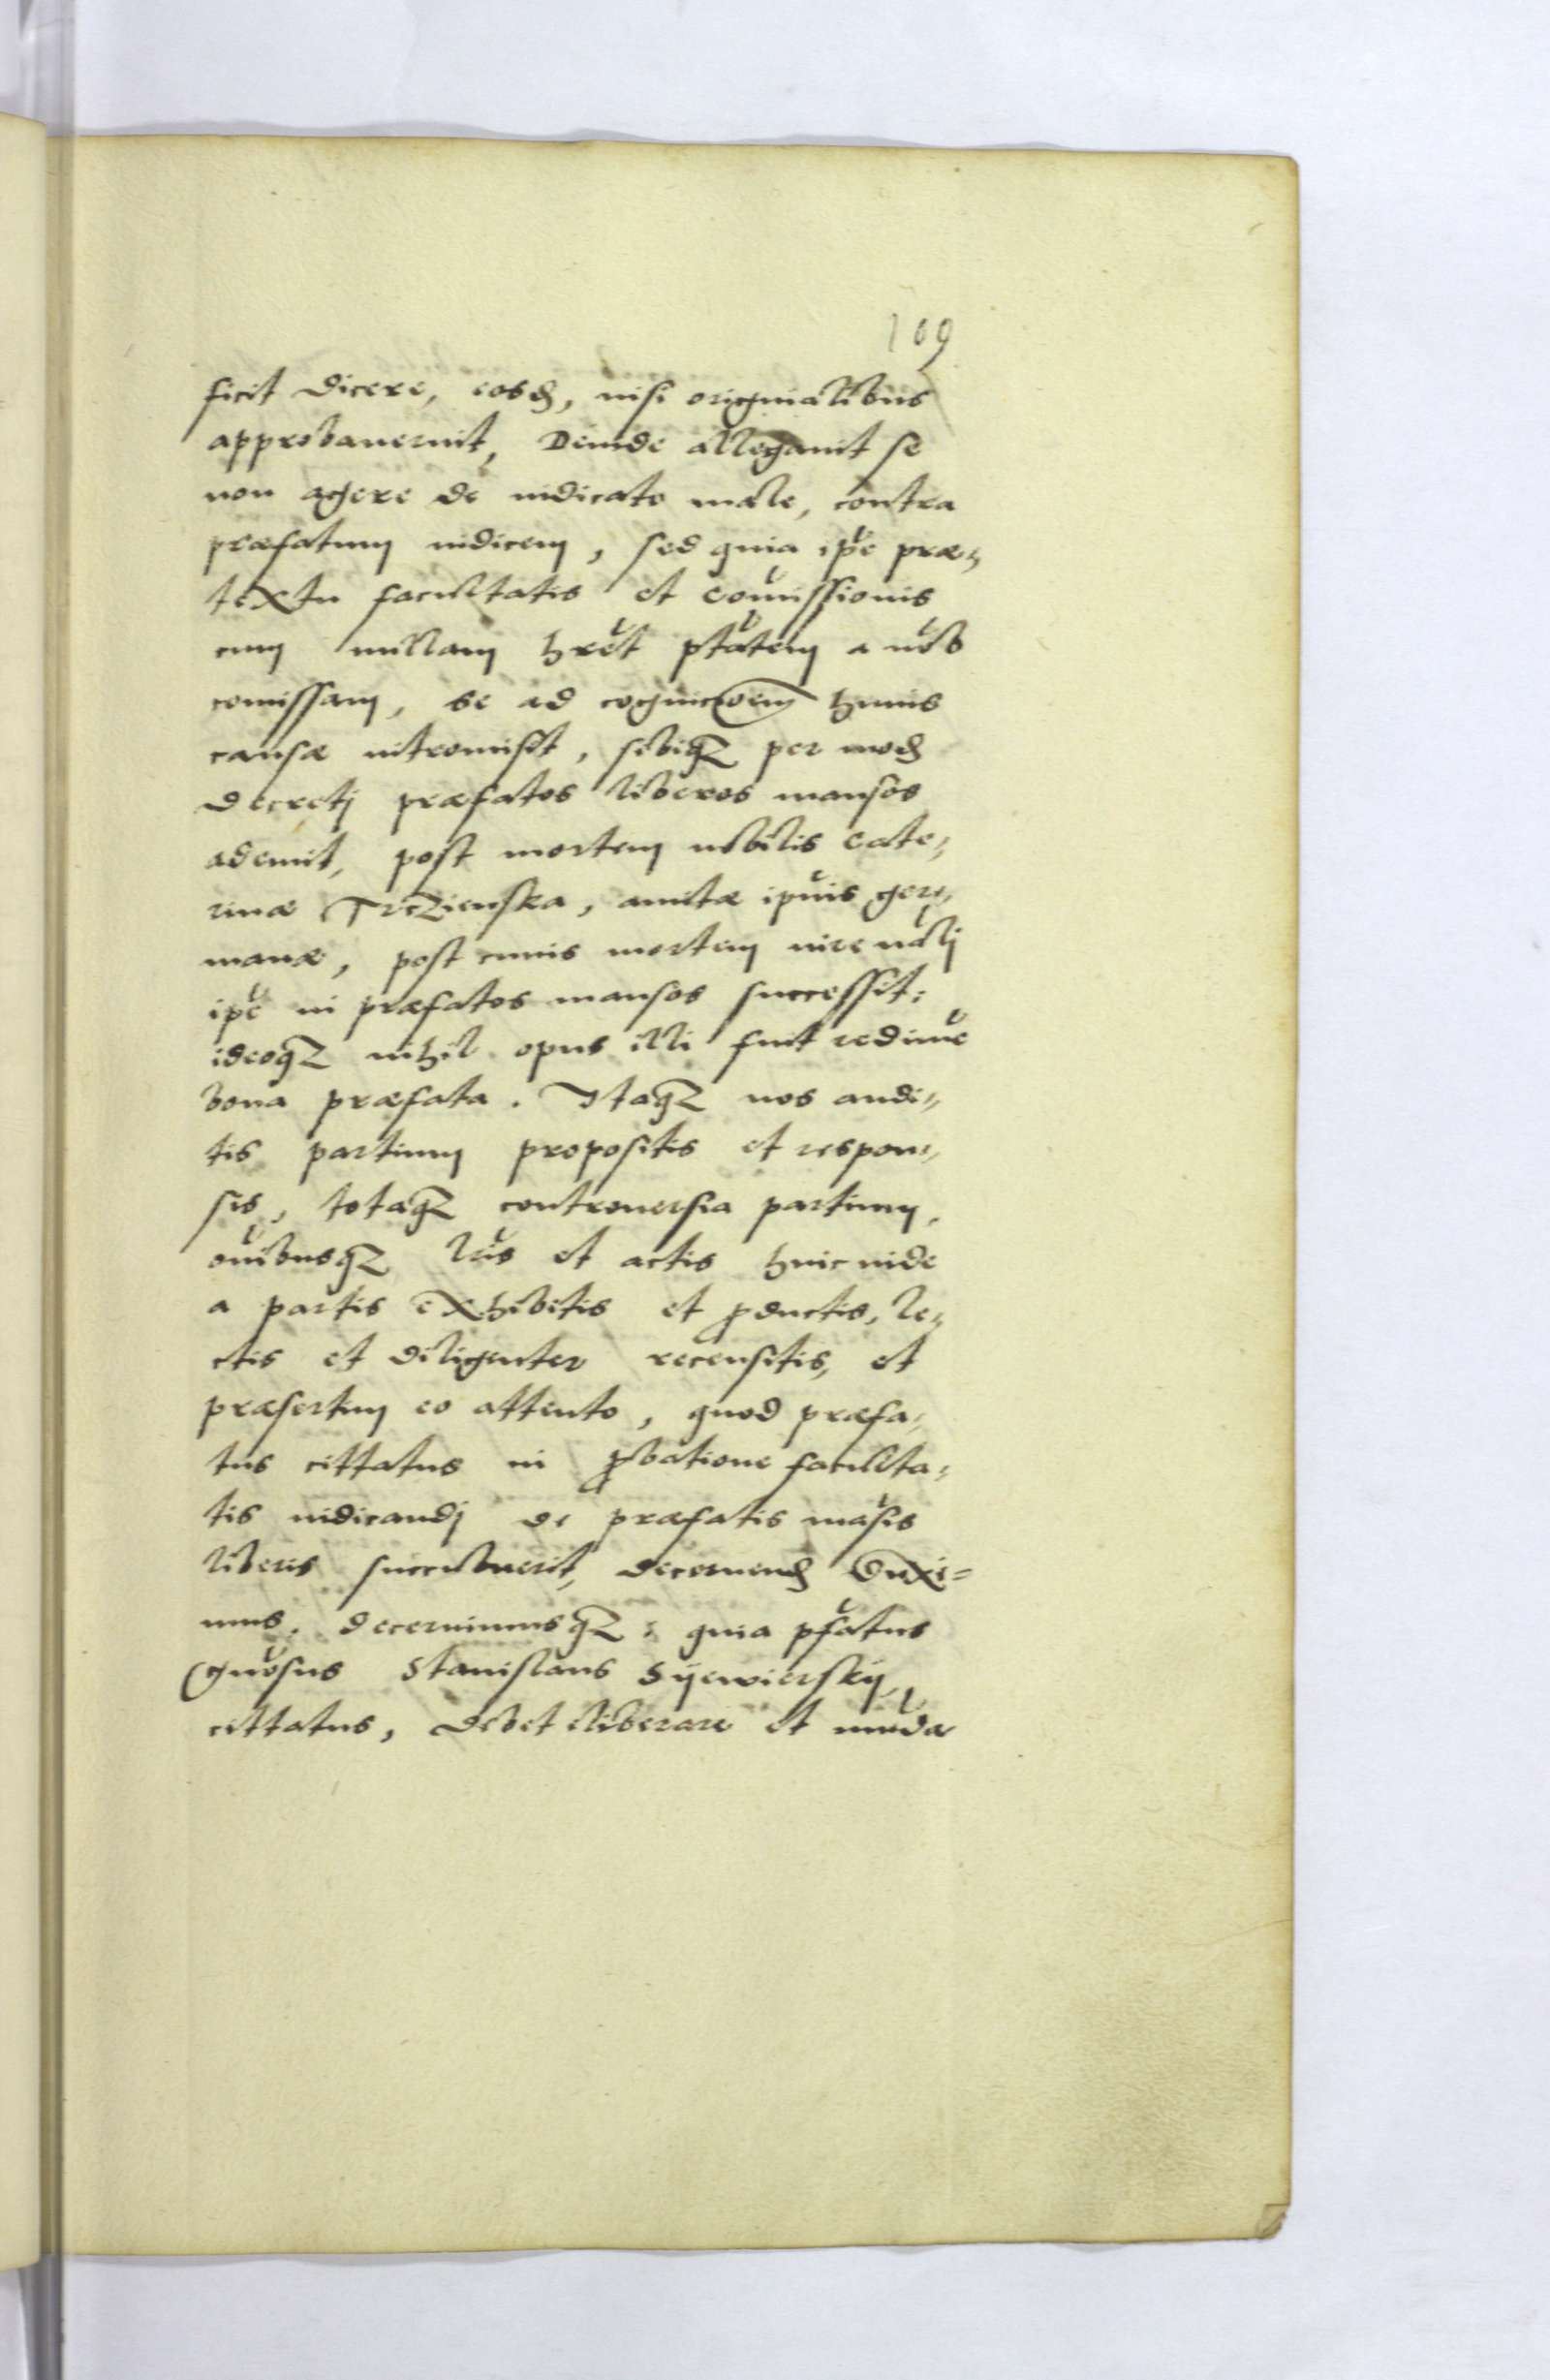 109
ficit dicere, eosd, nisi originalibus
approbauerint, Deinde allegauit se
non agere de iudicato male, contra
præfatum iudicem, sed quia ipe præ-
textu facultatis et comissionis
cum nullam hret ptatem a nob
comissam, se ad cognicioem huius
causæ intromisit, sibiq per mod
decretj præfatos liberos mansos
ademit, post mortem nobilis Cate-
rinæ Trczienska, amitæ ipius ger-
manæ, post cuius mortem iure nalj
ipe in præfatos mansos successit:
ideoq nihil opus illi fuit redime
bona præfata. Itaq nos audi-
tis partium propositis et respon-
sis, totaq controuersia partium,
oibusq lris et actis hinc inde
a partis exhibitis et productis, le-
ctis et diligenter recensitis, et
præsertim eo attento, quod præfa-
tus cittatus in probatione faculta-
tis iudicandj de præfatis masis
liberis succubuerit, decernend duxi-
mus. decernimusq: quia pfatus
Gnosus Stanislaus Syewierskÿ,
cittatus, debet liberare et munda